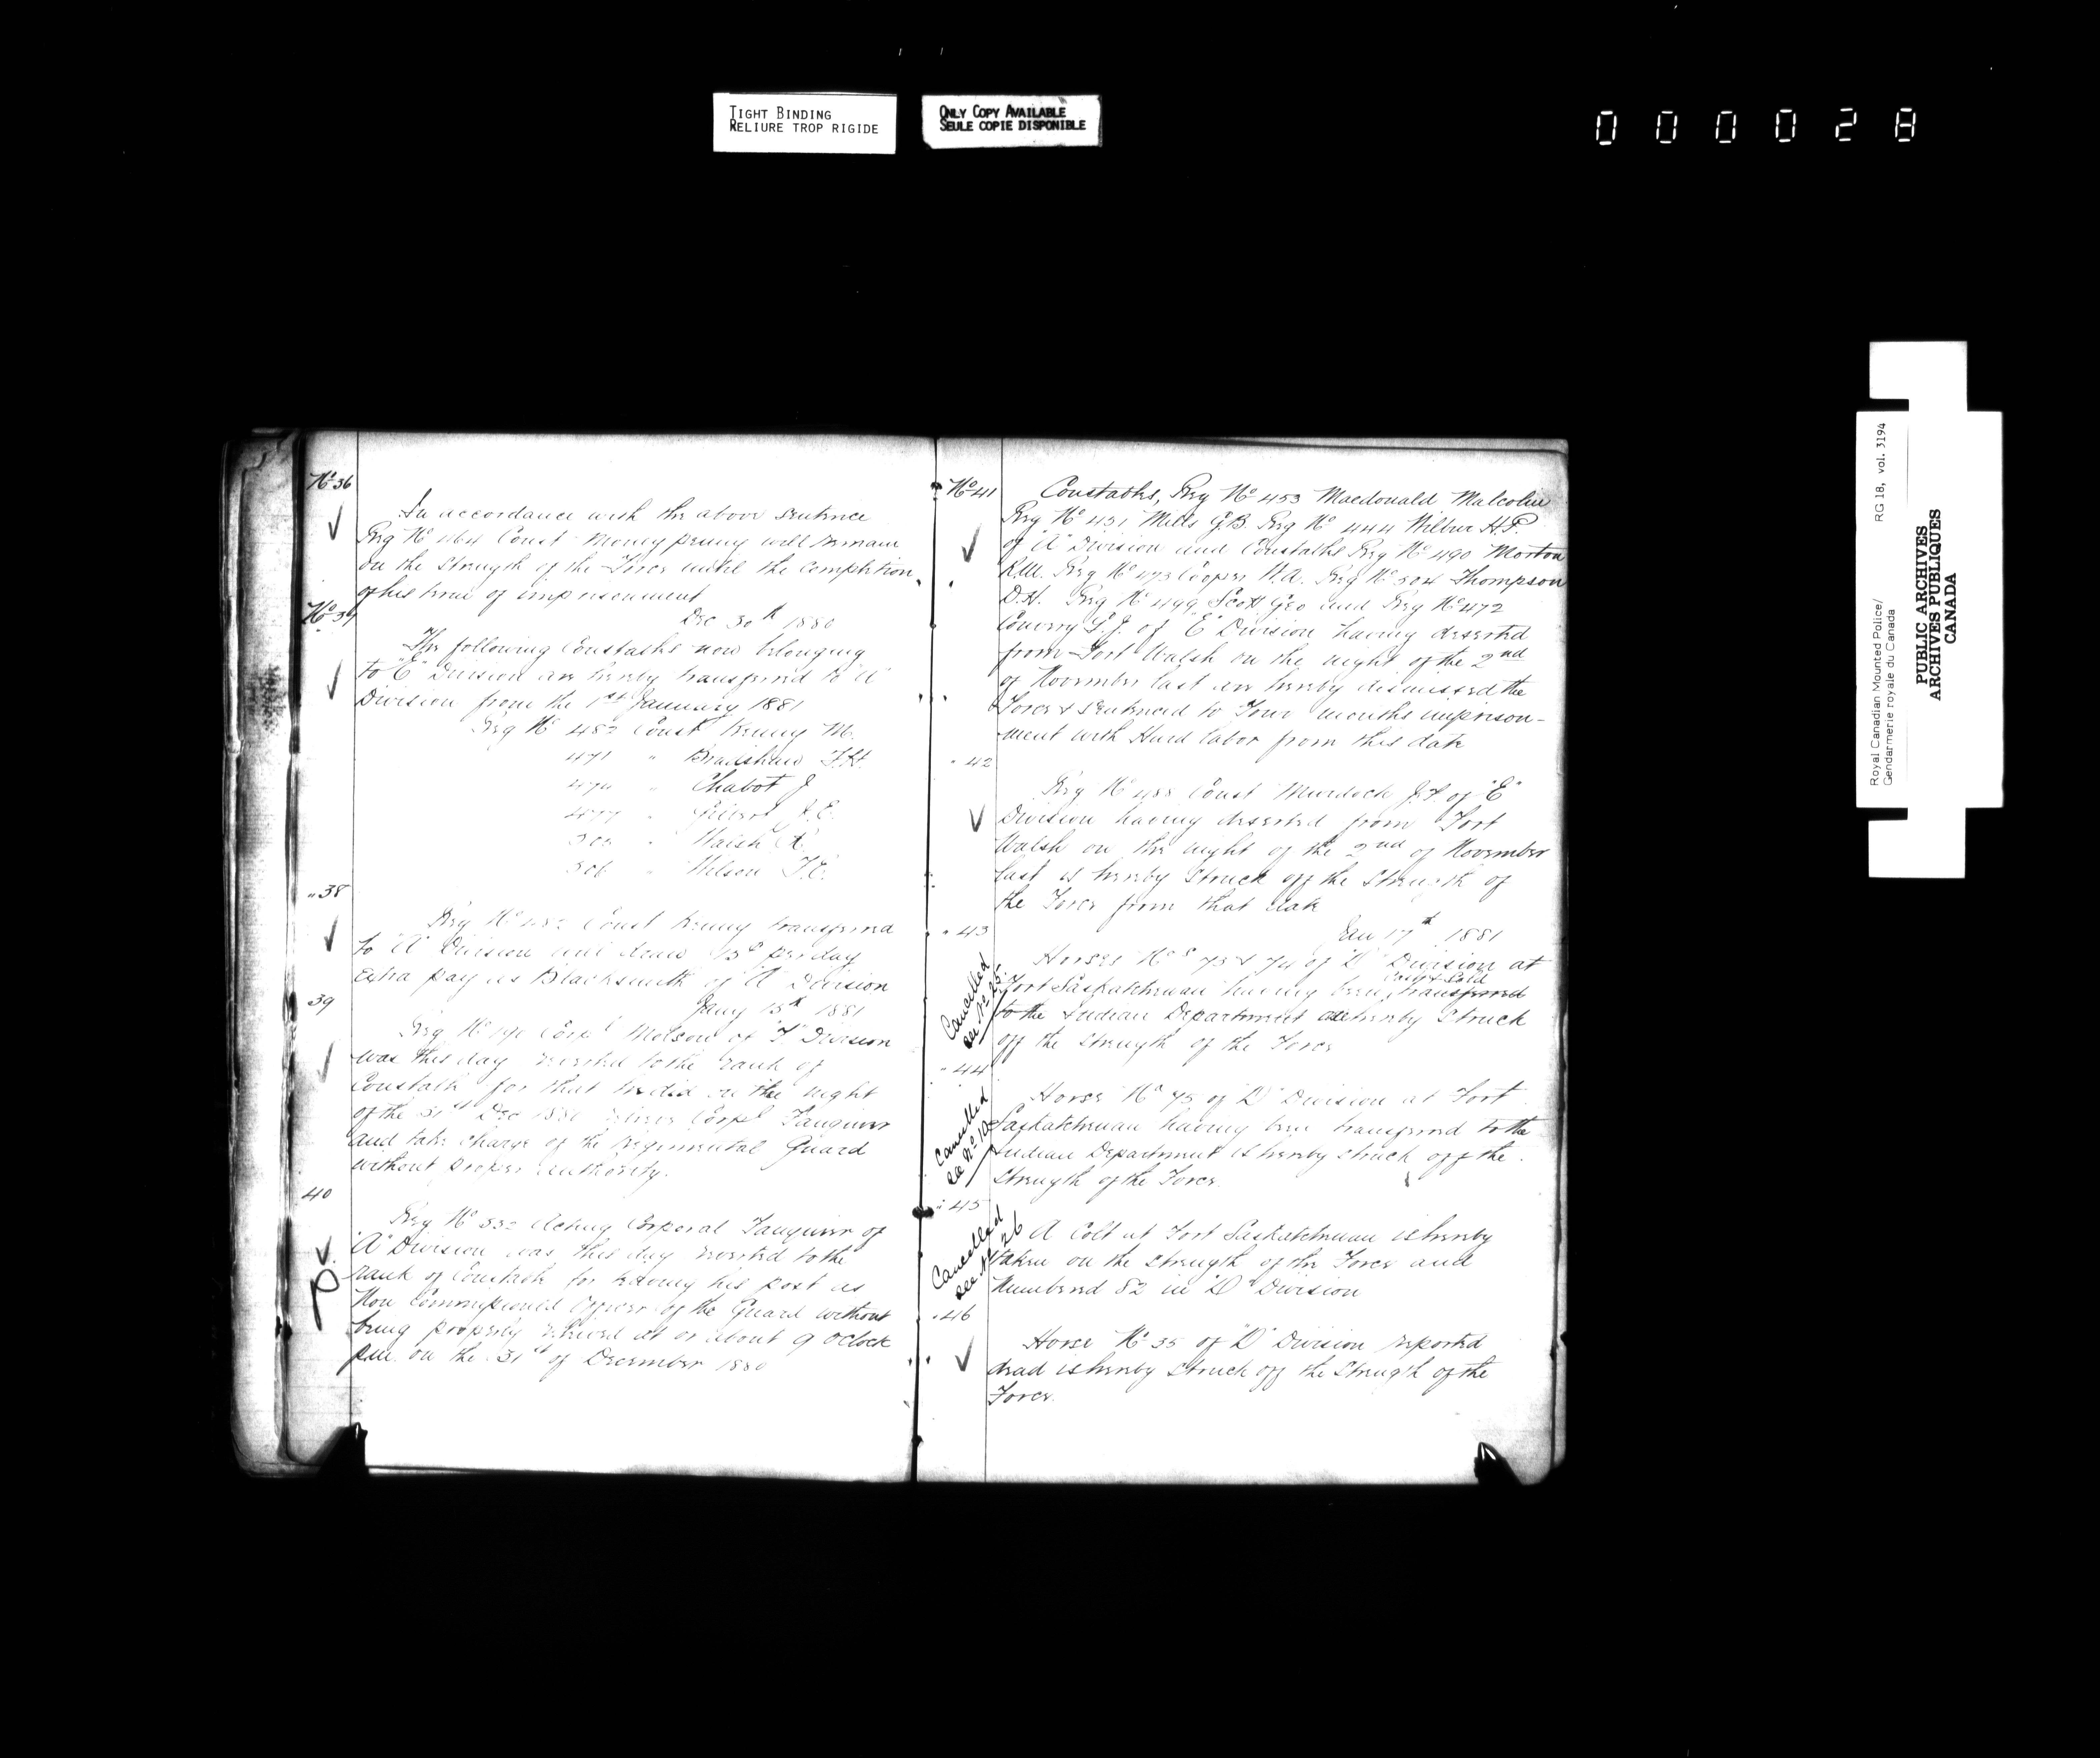 TIGHT BINDING
RELIURE TROP RIGIDE
ONLY COPY AVAILABLE
SEULE COPIE DISPONIBLE
000028
No 36
In accordance with the above sentence
Reg No 464 Const Moneypenny will remain
on the Strength of the Force until the completion
of his time of imprisonment
No 37
Dec 30th 1880
The following Constables now belonging
to "E" Division are hereby transferred to "A"
Division from the 1st January 1881
Reg No 482 Const Kenny M.
471 " Bradshaw F.H.
474 " Chabot J
" E.
" Walsh A
506 " Wilson F.E.
" 38
Reg No 482 Const Kenny transferred
to "A" Division will draw 15c per day
extra pay as Blacksmith of "A" Division
39
Jany 15th 1881
Reg No Corpl Molson of "F" Division
was this day reverted to the rank of
Constable for that he did on the night
of the 31st Dec 1880 relieve Corpl Fauquier
and take charge of the regimental Guard
without proper authority.
40
Reg No 332 Acting Corporal Fauquier of
"A" Division was this day reverted to the
rank of Constable for leaving his post as
Non Commissioned Officer of the Guard without
being properly relieved at or about 9 oClock
p.m. on the 31st of December 1880
No 41
Constables, Reg No 453 Macdonald Malcolm
Reg No 431 Mills G.B Reg No 444 Wilbur H.P.
of "A" Division and Constables Reg No 490 Morton
R.M. Reg No 473 Cooper W.A. Reg No 504 Thompson
D.H. Reg No 499 Scott Geo and Reg No 472
Converry L.J. of "E" Division having deserted
from Fort Walsh on the night of the 2nd
of November last are hereby dismissed the
Force & sentenced to Four months imprison-
ment with Hard labor from this date
" 42
Reg No 488 Const Murdoch J.F. of "E"
Division having deserted from Fort
Walsh on the night of the 2nd of November
last is hereby struck off the Strength of
the Force from that date
" 43
Jan 17th 1881
Horses Nos 73 & 74 of "D" Division at
Cast & Sold
Fort Saskatchewan having been transferred
to the Indian Department are hereby struck
off the strength of the Force
Cancelled
see No 25
" 44
Horse No 75 of "D" Division at Fort
Saskatchewan having been transferred to the
Indian Department is hereby struck off the
strength of the Force.
Cancelled
see No 10
" 45
A Colt at Fort Saskatchewan is hereby
taken on the strength of the Force and
Numbered 82 in "D" Division
Cancelled
see No 26
" 46
Horse No 35 of "D" Division reported
dead is hereby struck off the Strength of the
Force.
Royal Canadian Mounted Police/
Gendarmerie royale du Canada
RG 18, vol. 3194
PUBLIC ARCHIVES
ARCHIVES PUBLIQUES
CANADA